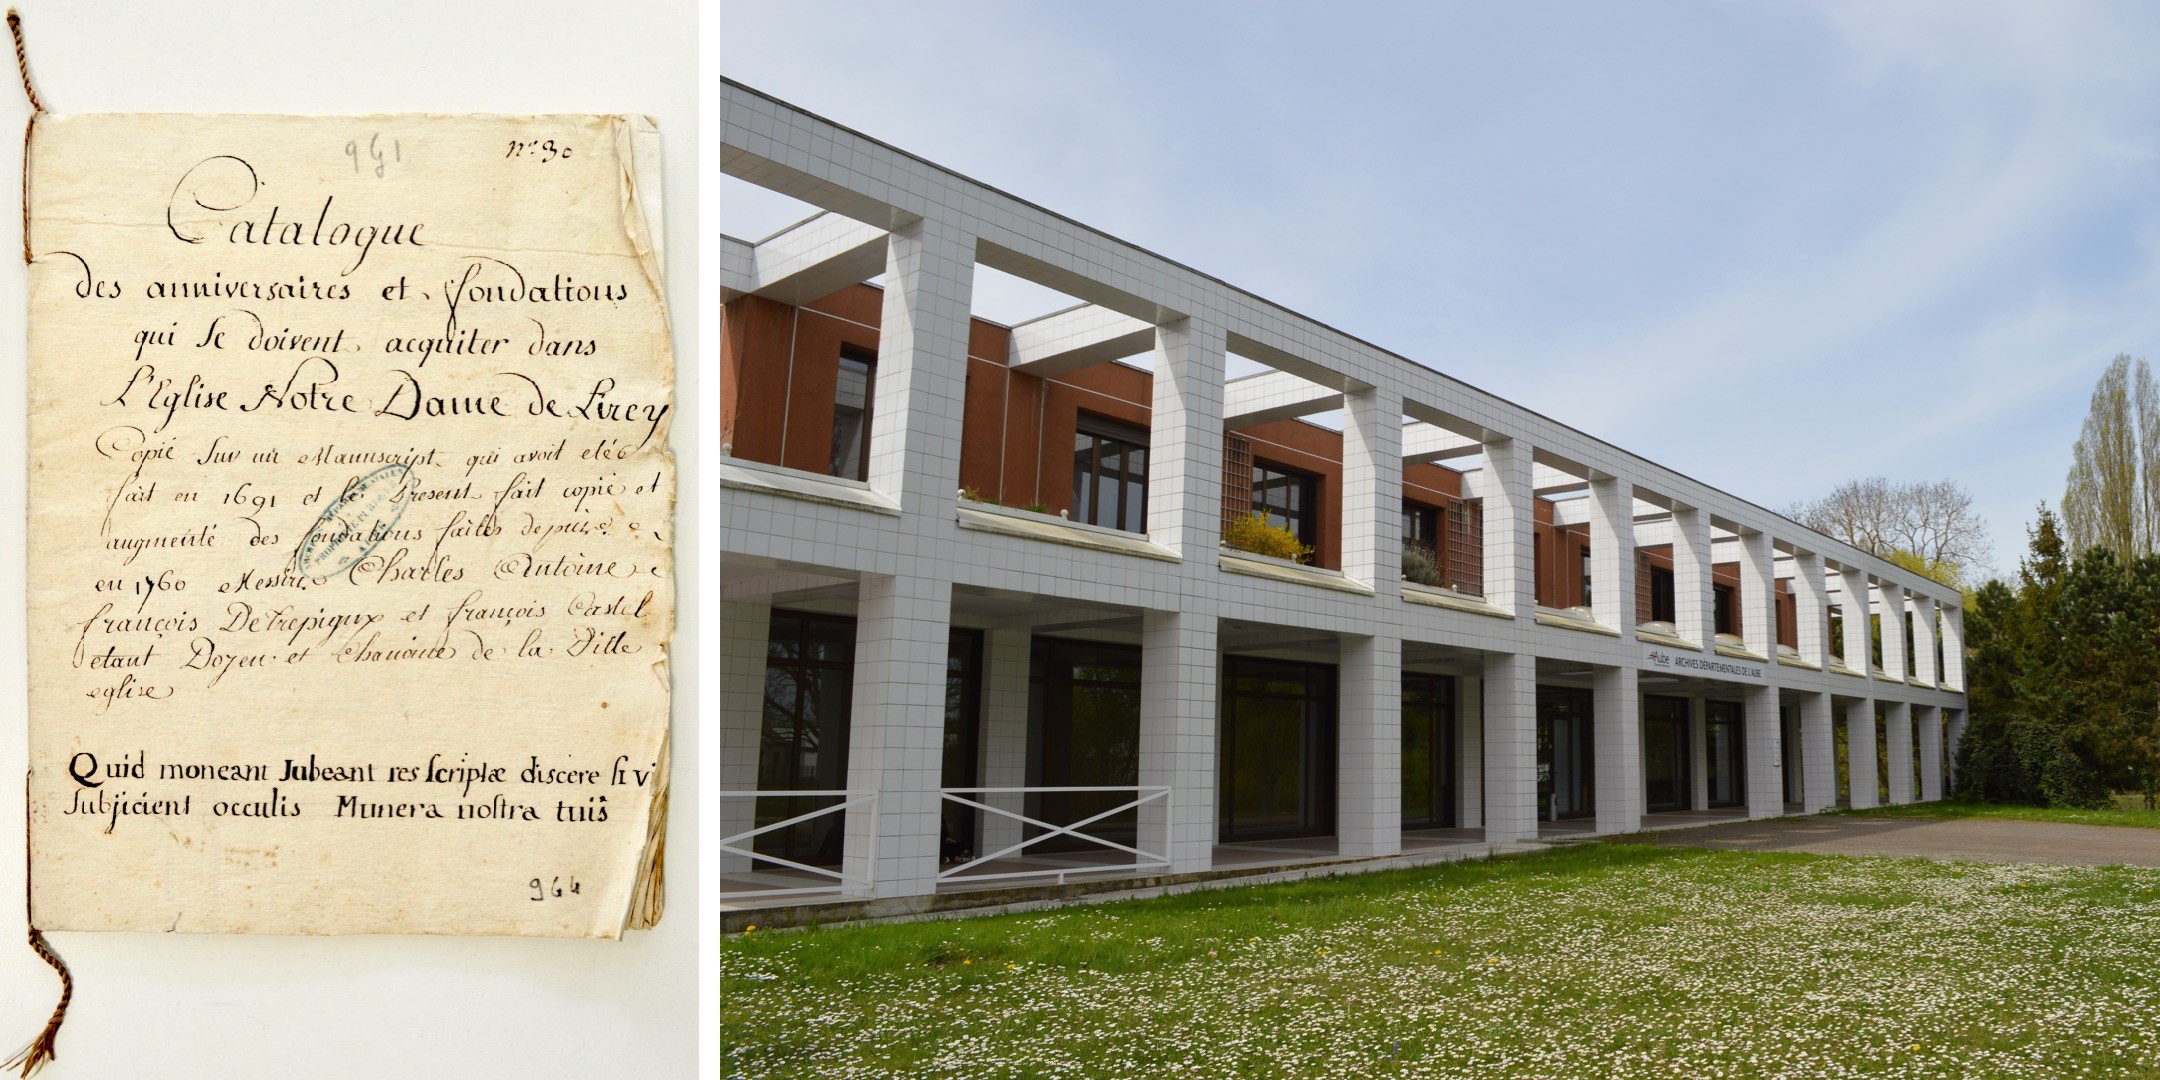 941
n.º 30
Catalogue
des anniversaires et fondations
qui se doivent acquiter dans
L'Eglise Notre Dame de Lirey
Copié sur un Manuscript qui avoit eté
fait en 1691 et le present fait copié et
augmenté des fondations faites depuis
en 1760 Messire Charles Antoine
françois Detrepigux et françois Castel
etant Doyen et Chanoine de la Ditte
eglise
Quid moneant Jubeant res scriptæ discere si vi
subjicient occulis Munera nostra tuis
964
Aube
ARCHIVES DÉPARTEMENTALES DE L'AUBE